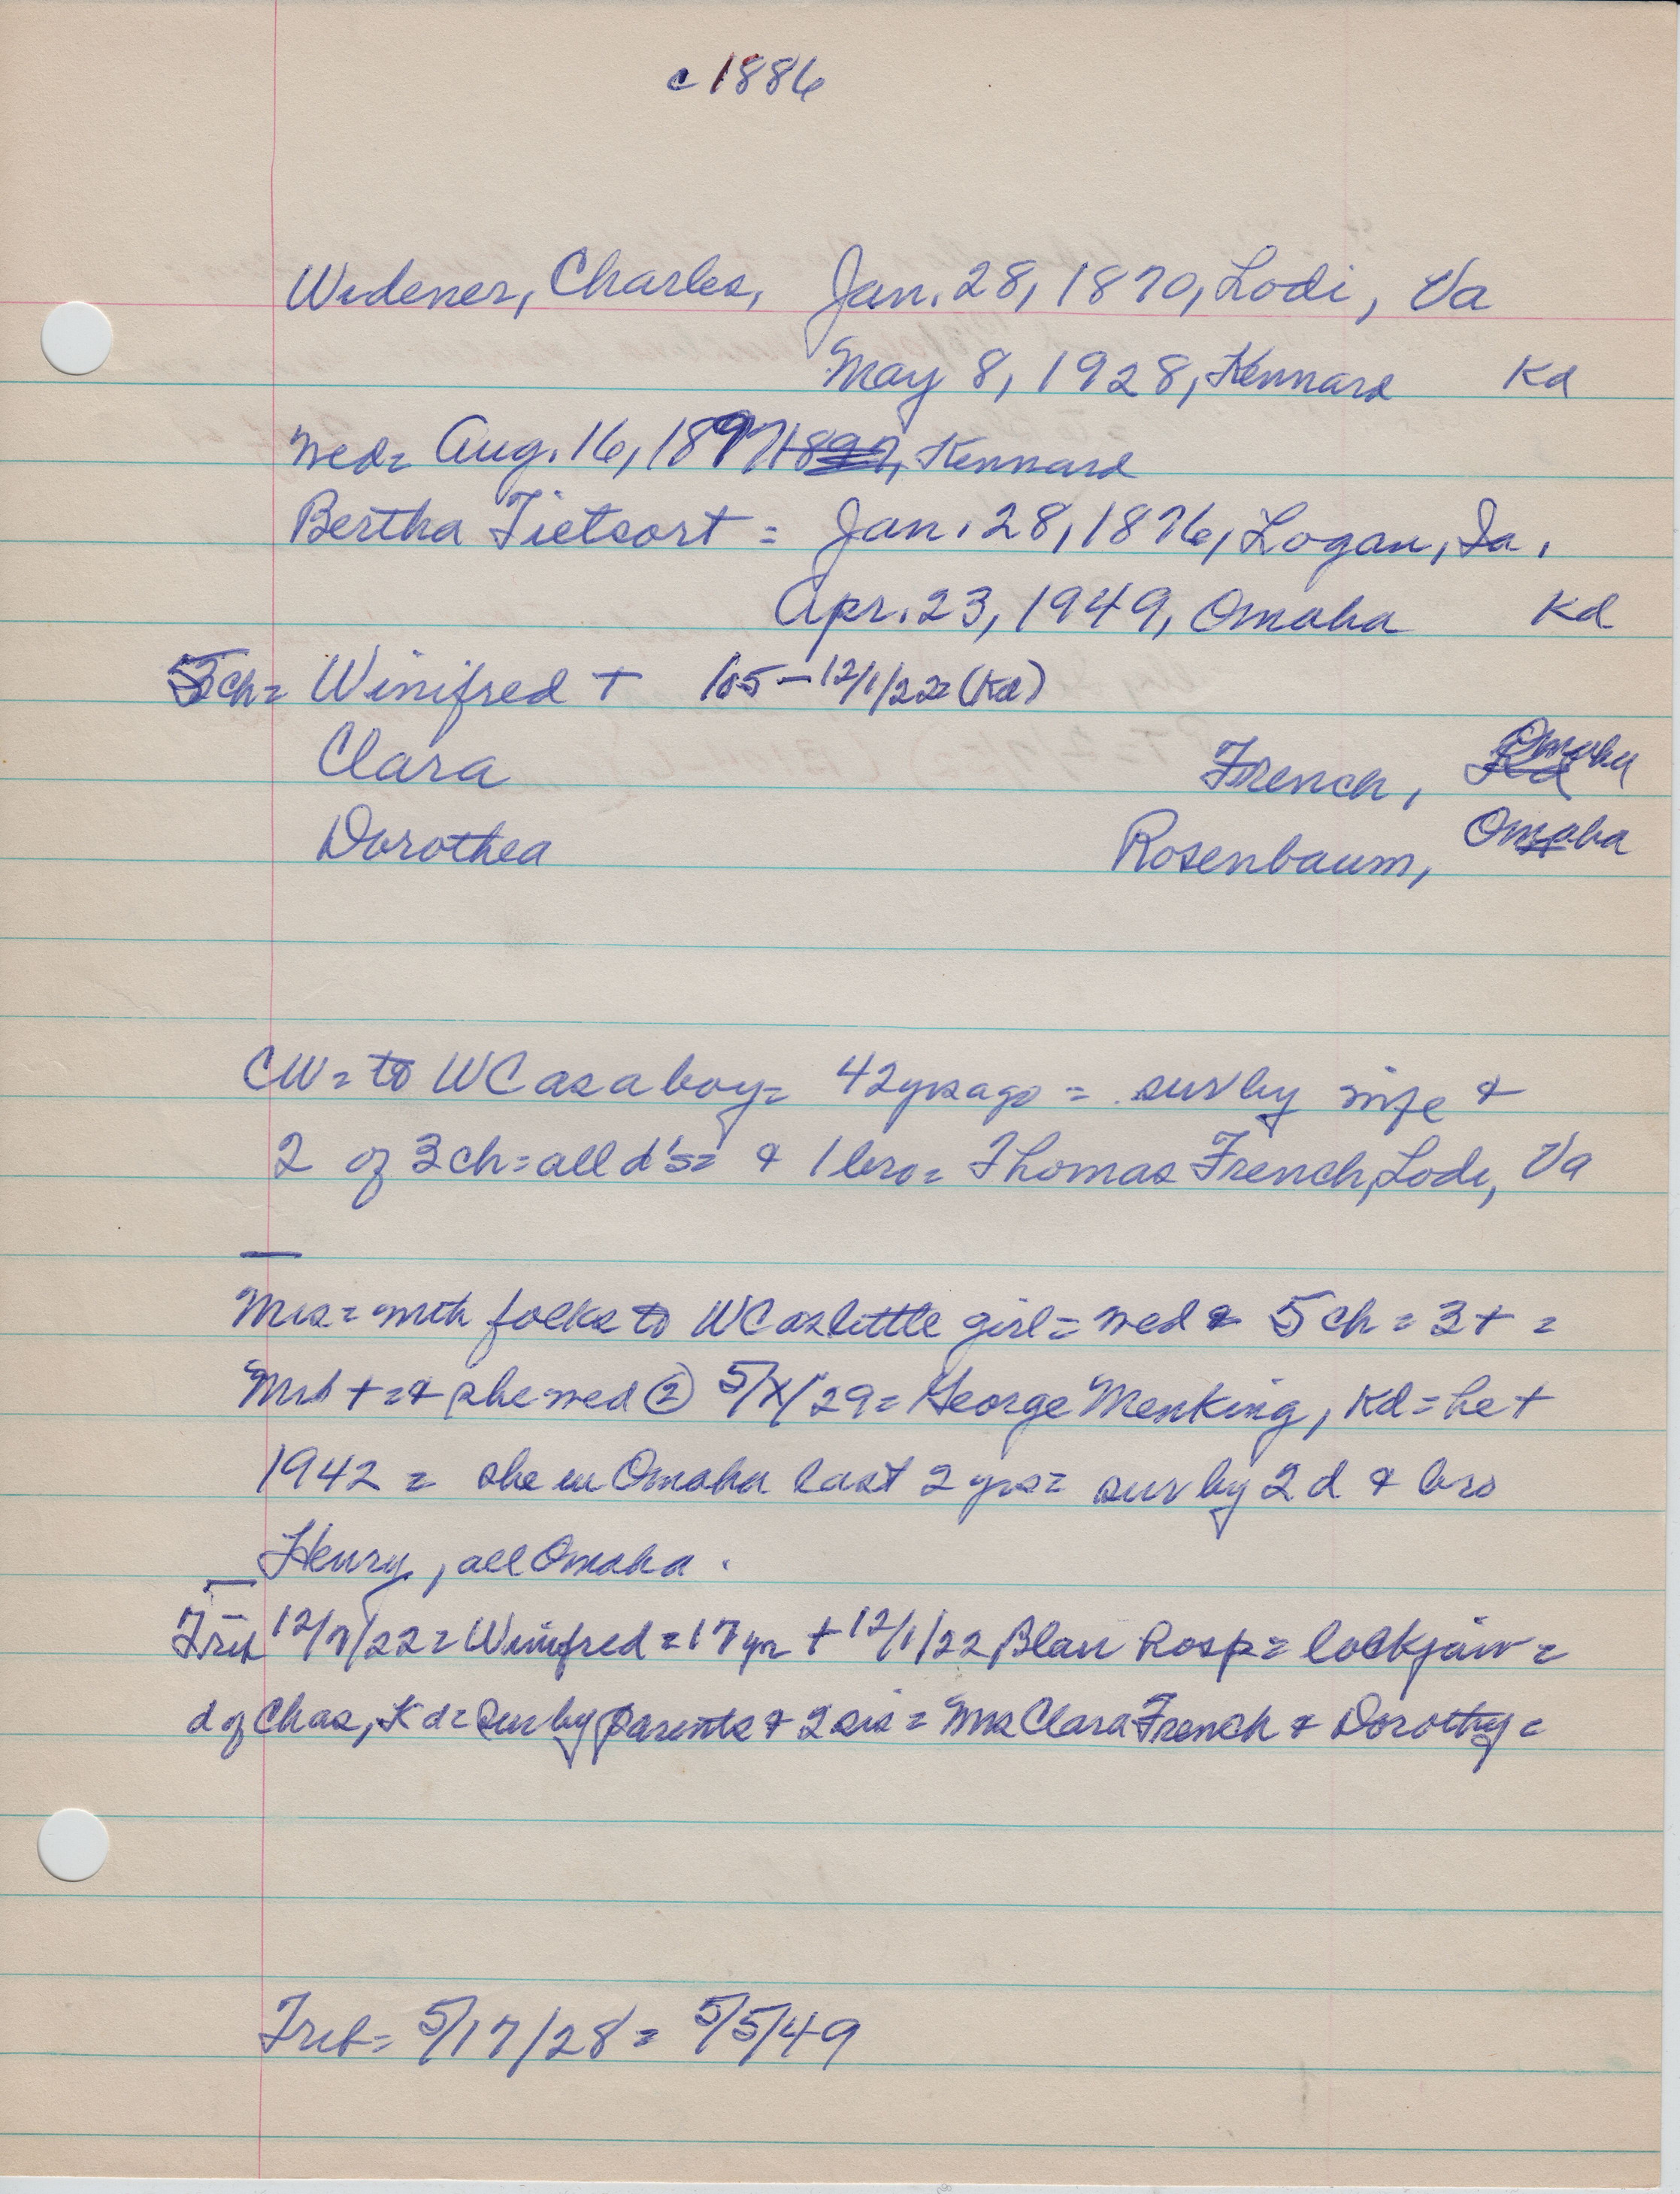 c 1886
Widener, Charles, Jan. 28, 1870, Lodi, Va
May 8, 1928, Kennard Kd
wed= Aug. 16, 1897, Kennard
Bertha Tietsort = Jan. 28, 1876, Logan, Ia.
Apr. 23, 1949, Omaha Kd
5ch= Winifred + 105-12/1/22 (Kd)
Clara French, Omaha
Dorothea Rosenbaum, Omaha
CW= to WC as a boy= 42 yrs ago = sur by wife &
2 of 3 ch= all d's= & 1 bro= Thomas French, Lodi, Va
—
Mrs= with folks to WC as little girl= wed & 5 ch = 3+ =
Mr + = & she wed ② 5/X/29= George Menking, Kd= he +
1942 = she in Omaha last 2 yrs= sur by 2 d & bro
Henry, all Omaha.
—
Trib 12/7/22= Winifred= 17 yr + 12/1/22 Blair Hosp= lockjaw=
d of Chas, Kd= sur by parents & 2 sis = Mrs Clara French & Dorothy=
Trib= 5/17/28= 5/5/49